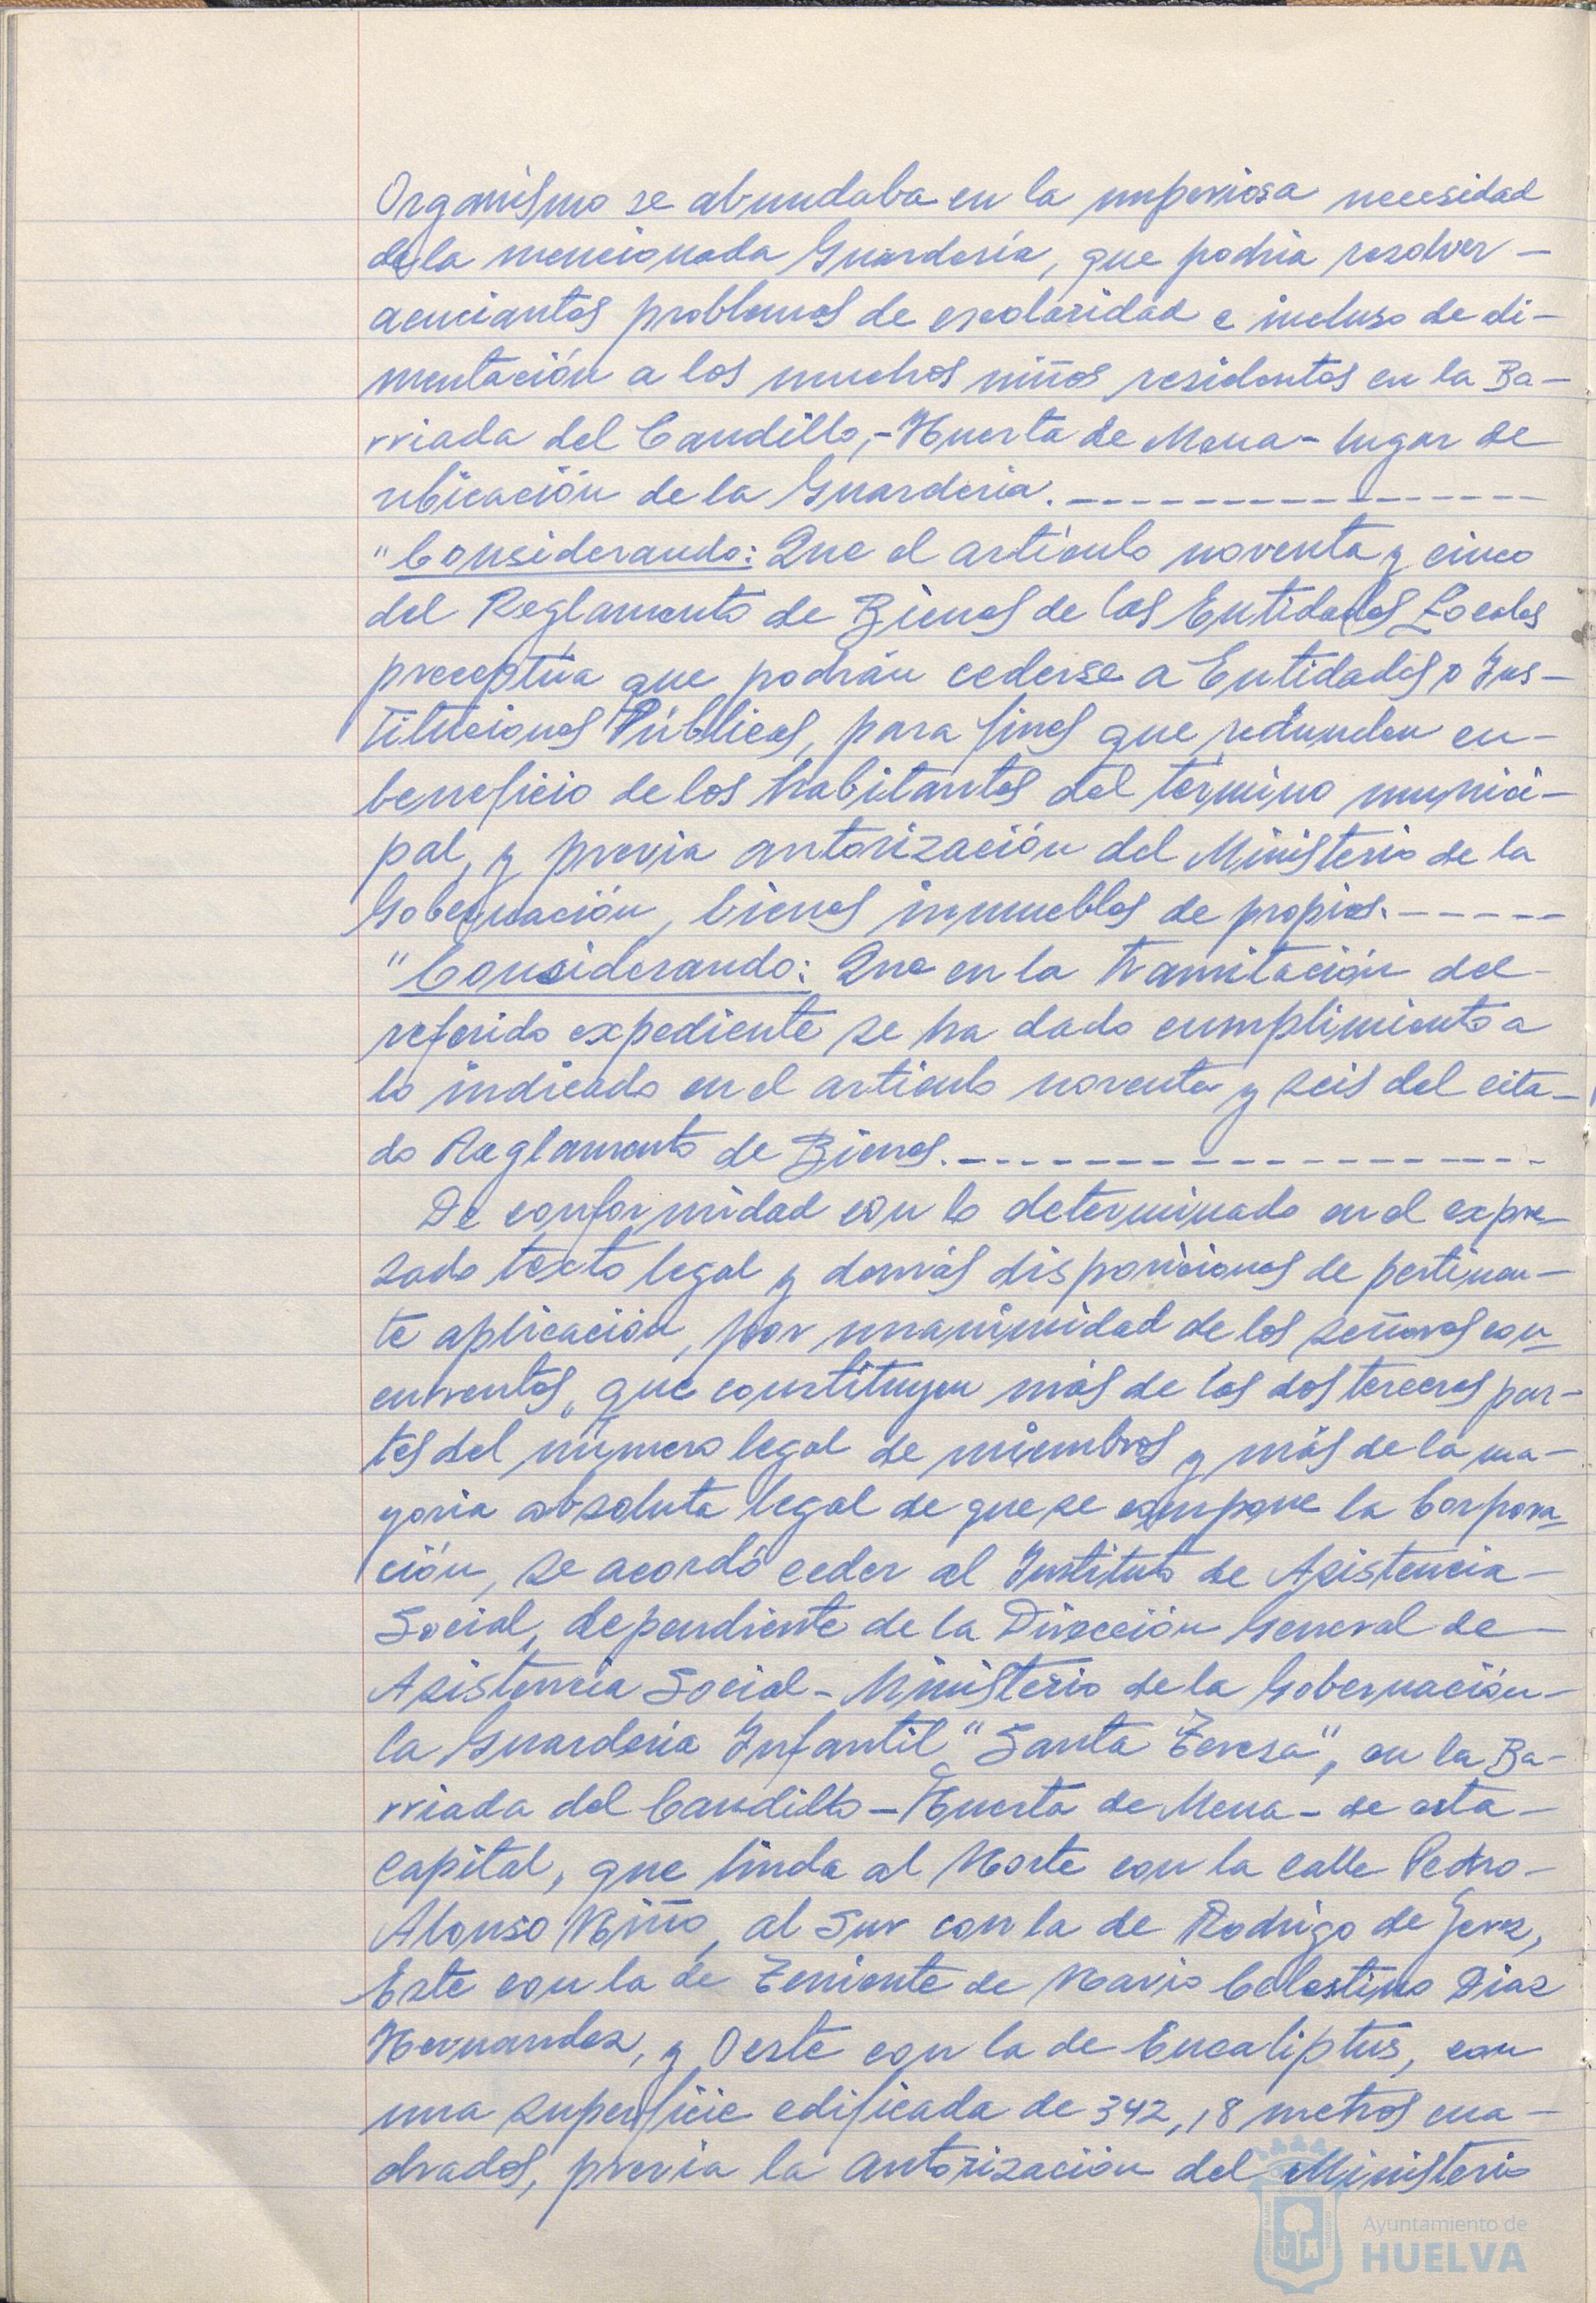 Organismo se abundaba en la imperiosa necesidad
de la mencionada Guardería, que podria resolver -
acuciantes problemas de escolaridad e incluso de ali-
mentación a los muchos niños residentes en la Ba-
rriada del Caudillo, - Huerta de Mena - lugar de
ubicación de la Guardería. - - - - - - - - - - - - - - -
"Considerando: Que el artículo noventa y cinco
del Reglamento de Bienes de las Entidades Locales
preceptúa que podrán cederse a Entidades o Ins-
tituciones Públicas, para fines que redunden en -
beneficio de los habitantes del término munici-
pal, y previa autorización del Ministerio de la
Gobernación, bienes inmuebles de propios. - - - - -
"Considerando: Que en la tramitación del -
referido expediente se ha dado cumplimiento a
lo indicado en el artículo noventa y seis del cita-
do Reglamento de Bienes. - - - - - - - - - - - - - - - - -
De conformidad con lo determinado en el expre-
sado texto legal y demás disposiciones de pertinen-
te aplicación, por unanimidad de los señores con-
currentes, que constituyen más de las dos terceras par-
tes del número legal de miembros y más de la ma-
yoria absoluta legal de que se compone la Corpora-
ción, se acordó ceder al Instituto de Asistencia -
Social, dependiente de la Dirección General de -
Asistencia Social - Ministerio de la Gobernación -
la Guardería Infantil "Santa Teresa", en la Ba-
rriada del Caudillo - Huerta de Mena - de esta -
capital, que linda al Norte con la calle Pedro -
Alonso Niño, al Sur con la de Rodrigo de Jerez,
Este con la de Teniente de Navio Celestino Diaz
Hernandez, y Oeste con la de Eucaliptus, con
una superficie edificada de 342,18 metros cua-
drados, previa la autorización del Ministerio
Ayuntamiento de
HUELVA